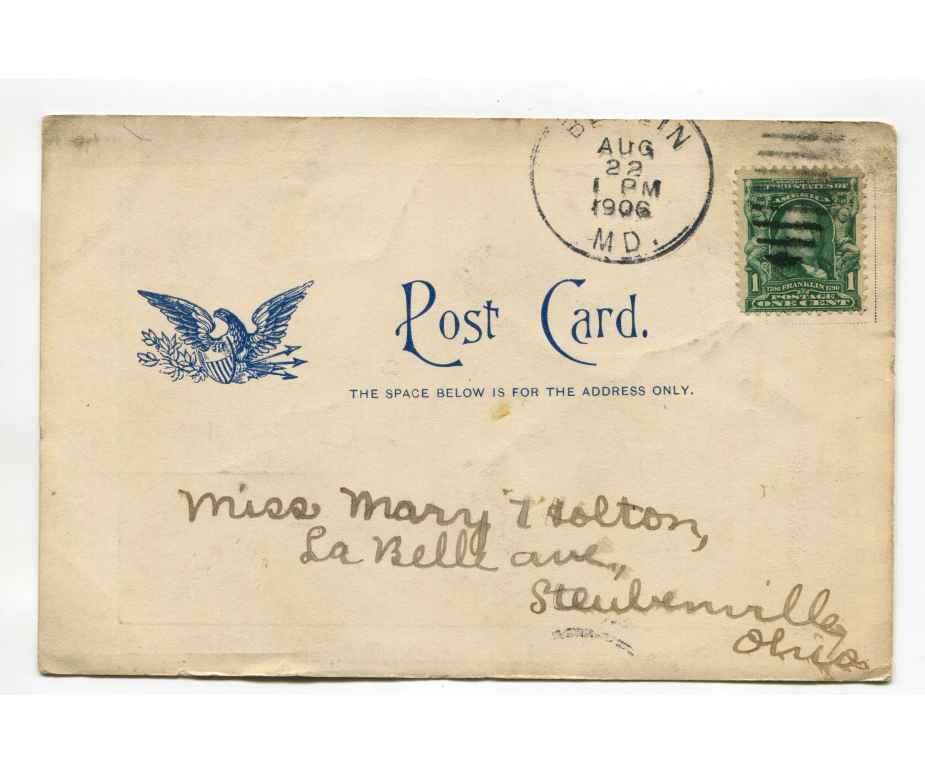 AUG
22
1 PM
1906
MD.
STATES OF
AMERICA
1 1
FRANKLIN
POSTAGE
ONE CENT
Post Card.
THE SPACE BELOW IS FOR THE ADDRESS ONLY.
Miss Mary Holton,
La Belle ave.,
Steubenville,
Ohio